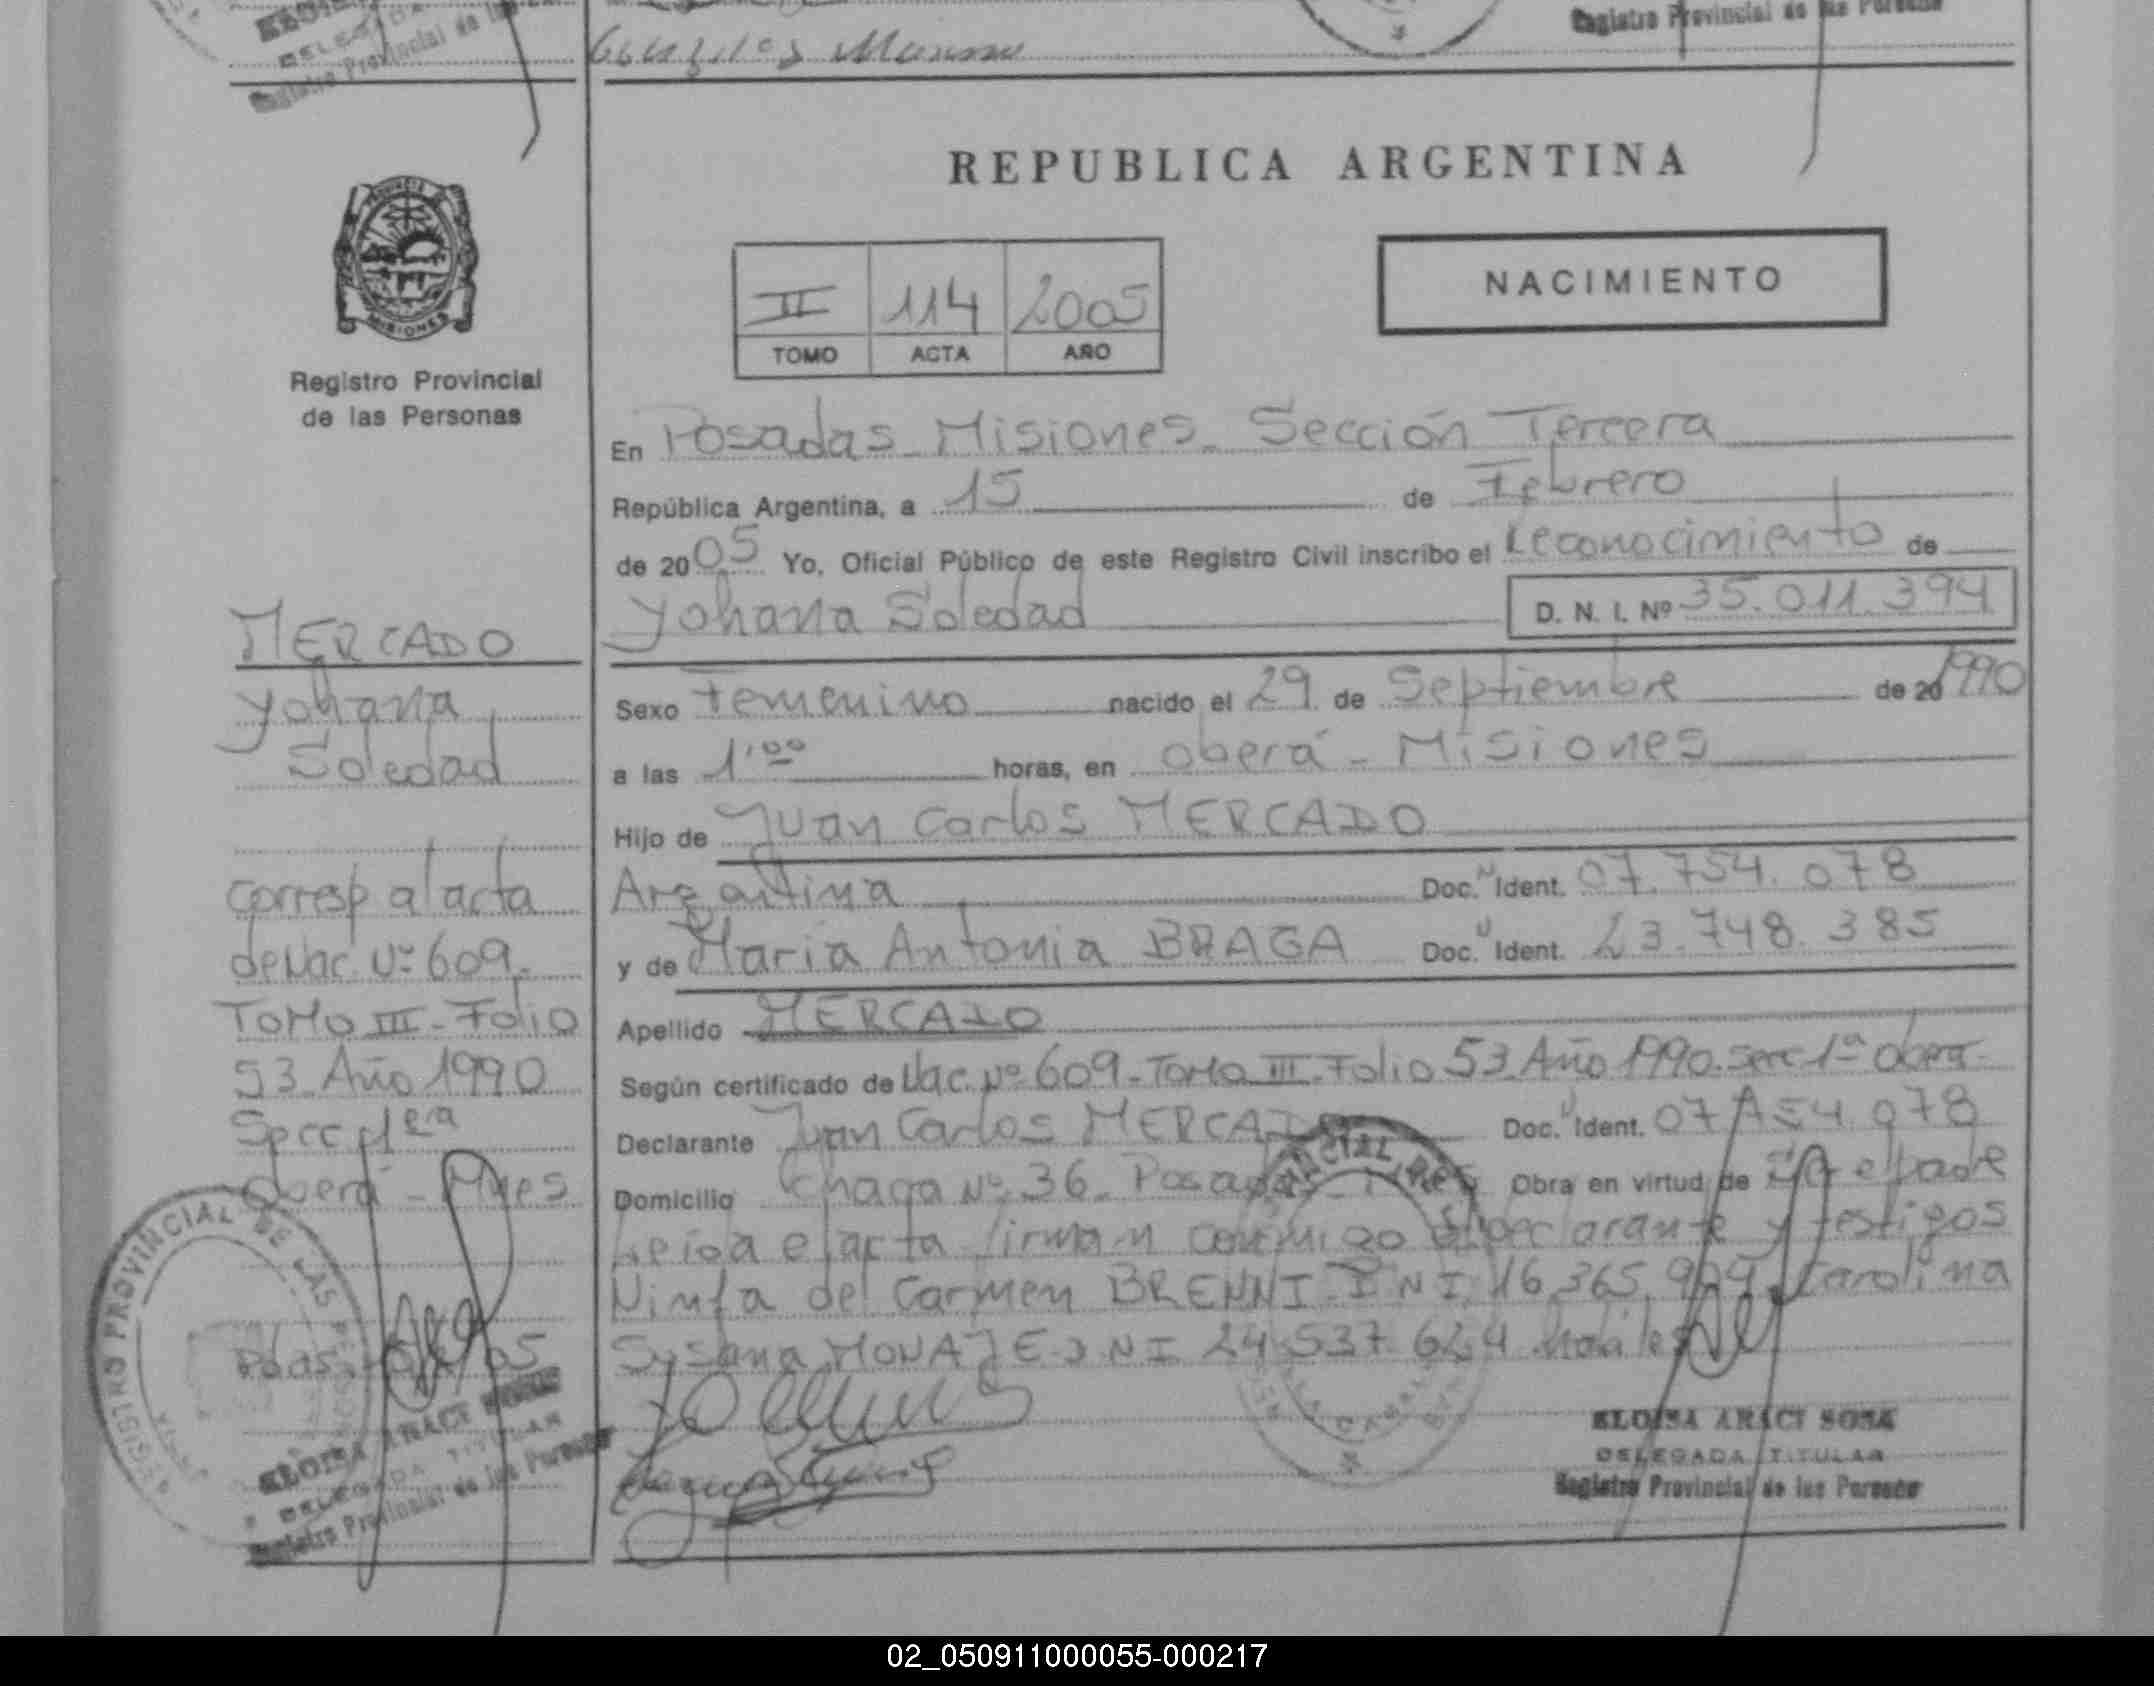 Registro Provincial de las Personas
REPUBLICA ARGENTINA
PROVINCIA
MISIONES
Registro Provincial
de las Personas
II 114 2005
TOMO ACTA AÑO
NACIMIENTO
En Posadas - Misiones - Sección Tercera
República Argentina, a 15 de Febrero
de 2005 Yo, Oficial Público de este Registro Civil inscribo el reconocimiento de
Yohana Soledad D. N. I. Nº 35.011.394
MERCADO
Yohana
Soledad
corresp al acta
de Nac. Nº 609.
Tomo III - Folio
53 - Año 1990
Secc 1era
Oberá - Mnes
Pdas.
Sexo Femenino nacido el 29 de Septiembre de 20 1990
a las 1'00 horas, en Oberá - Misiones
Hijo de Juan Carlos MERCADO
Argentina Doc. Ident. 07.754.078
y de Maria Antonia BRAGA Doc. Ident. 23.748.385
Apellido MERCADO
Según certificado de Nac. Nº 609 - Tomo III - Folio 53 Año 1990. Secc 1ª Oberá -
Declarante Juan Carlos MERCADO Doc. Ident. 07.754.078
Domicilio Chaga Nº 36 - Posadas - Obra en virtud de Ser el padre
Leida el acta firman conmigo el declarante y testigos
Ninfa del Carmen BRENNI - DNI 16.365. Carolina
Susana DNI 24.537.624
REGISTRO PROVINCIAL DE LAS
ELOISA ARACI SOSA
DELEGADA TITULAR
Registro Provincial de las Personas
ELOISA ARACI SOSA
DELEGADA TITULAR
Registro Provincial de las Personas
02_050911000055-000217